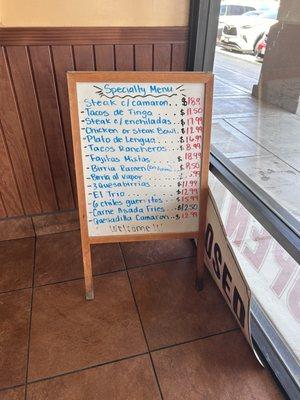 Specialty Menu
Steak c/camaron.. $18.99
Tacos de Tinga . $11.50
Steak c/enchiladas. $17.99
Chicken or steak Bowl. $12.99
Plato de Lengua... $16.99
Tacos Rancheros $8.99
Fajitas Mixtas .. $18.99
Birria Ramen $8.50
Birria al vapor
3 Quesabirrias
El Trio
6 chiles guerritos
Carne Asada Fries $12.50
Quesadilla Camaron $12.99
Welcome!!
CLOSED